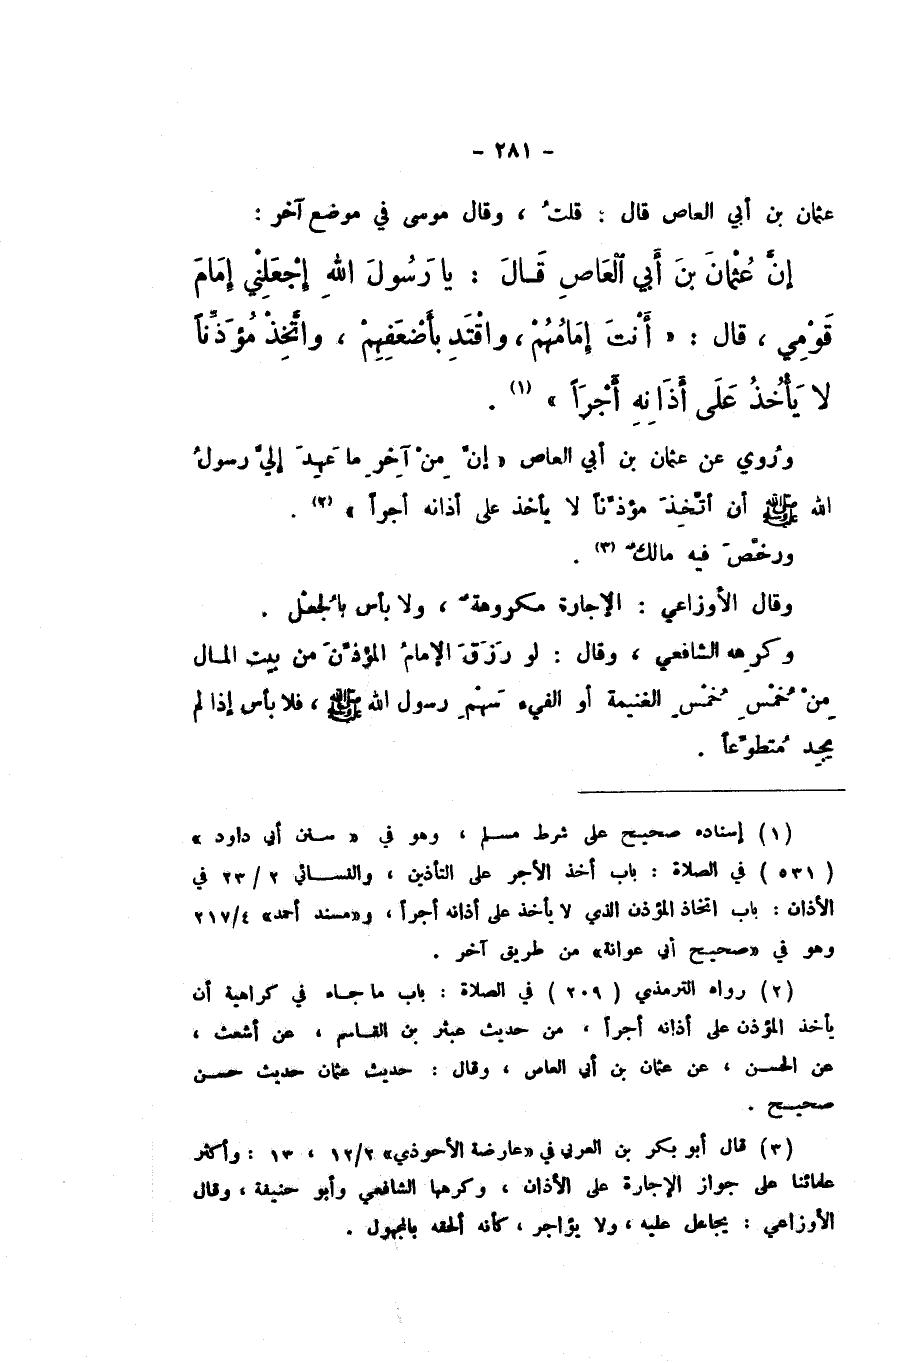 - ٢٨١ -
عثمان بن أبي العاص قال : قلتُ ، وقال موسى في موضع آخر :
إنَّ عُثْمَانَ بنَ أَبي ٱلعَاصِ قَـالَ : يا رَسُولَ اللهِ إجْعَلْنِي إمَامَ
قَوْمِي ، قال : « أَنْتَ إمَامُهُمْ ، واقْتَدِ بأَضْعَفِهِمْ ، واتَّخِذْ مُؤَذِّناً
لا يَأْخُذُ عَلَى أَذَانِهِ أَجْرَاً » (١) .
ورُوي عن عثمان بن أبي العاص « إنَّ مِنْ آخِرِ ما عَهِدَ إليَّ رسولُ
الله ﷺ أن أتَّخِذَ مؤذِّناً لا يأخذ على أذانه أجراً » (٢) .
ورخَّصَ فيه مالكٌ (٣) .
وقال الأوزاعي : الإجارة مكروهةٌ ، ولا بأس بالجُعْل .
وكرِهه الشافعي ، وقال : لو رَزَقَ الإمامُ المؤذِّنَ من بيت المـال
مِنْ خُمْسِ خُمْسِ الغنيمة أو الفيء سَهْمِ رسول الله ﷺ ، فلا بأس إذا لم
يجِد مُتطوِّعاً .
(١) إسناده صحيح على شرط مسلم ، وهو في « سنن أبي داود »
( ٥٣١ ) في الصلاة : باب أخذ الأجر على التأذين ، والنســائي ٢ / ٢٣ في
الأذان : باب اتخاذ المؤذن الذي لا يأخذ على أذانه أجراً ، و«مسند أحمد» ٢١٧/٤
وهو في «صحيح أبي عوانة» من طريق آخر .
(٢) رواه الترمذي ( ٢٠٩ ) في الصلاة : باب ما جـاء في كراهية أن
يأخذ المؤذن على أذانه أجراً ، من حديث عبثر بن القـاسم ، عن أشعث ،
عن الحسـن ، عن عثمان بن أبي العاص ، وقال : حديث عثمان حديث حسـن
صحيـح .
(٣) قال أبو بكر بن العربي في «عارضة الأحوذي» ١٢/٢ ، ١٣ : وأكثر
علمائنا على جواز الإجارة على الأذان ، وكرهها الشافعي وأبو حنيفة ، وقال
الأوزاعي : يجاعل عليه ، ولا يؤاجر ، كأنه ألحقه بالمجهول .